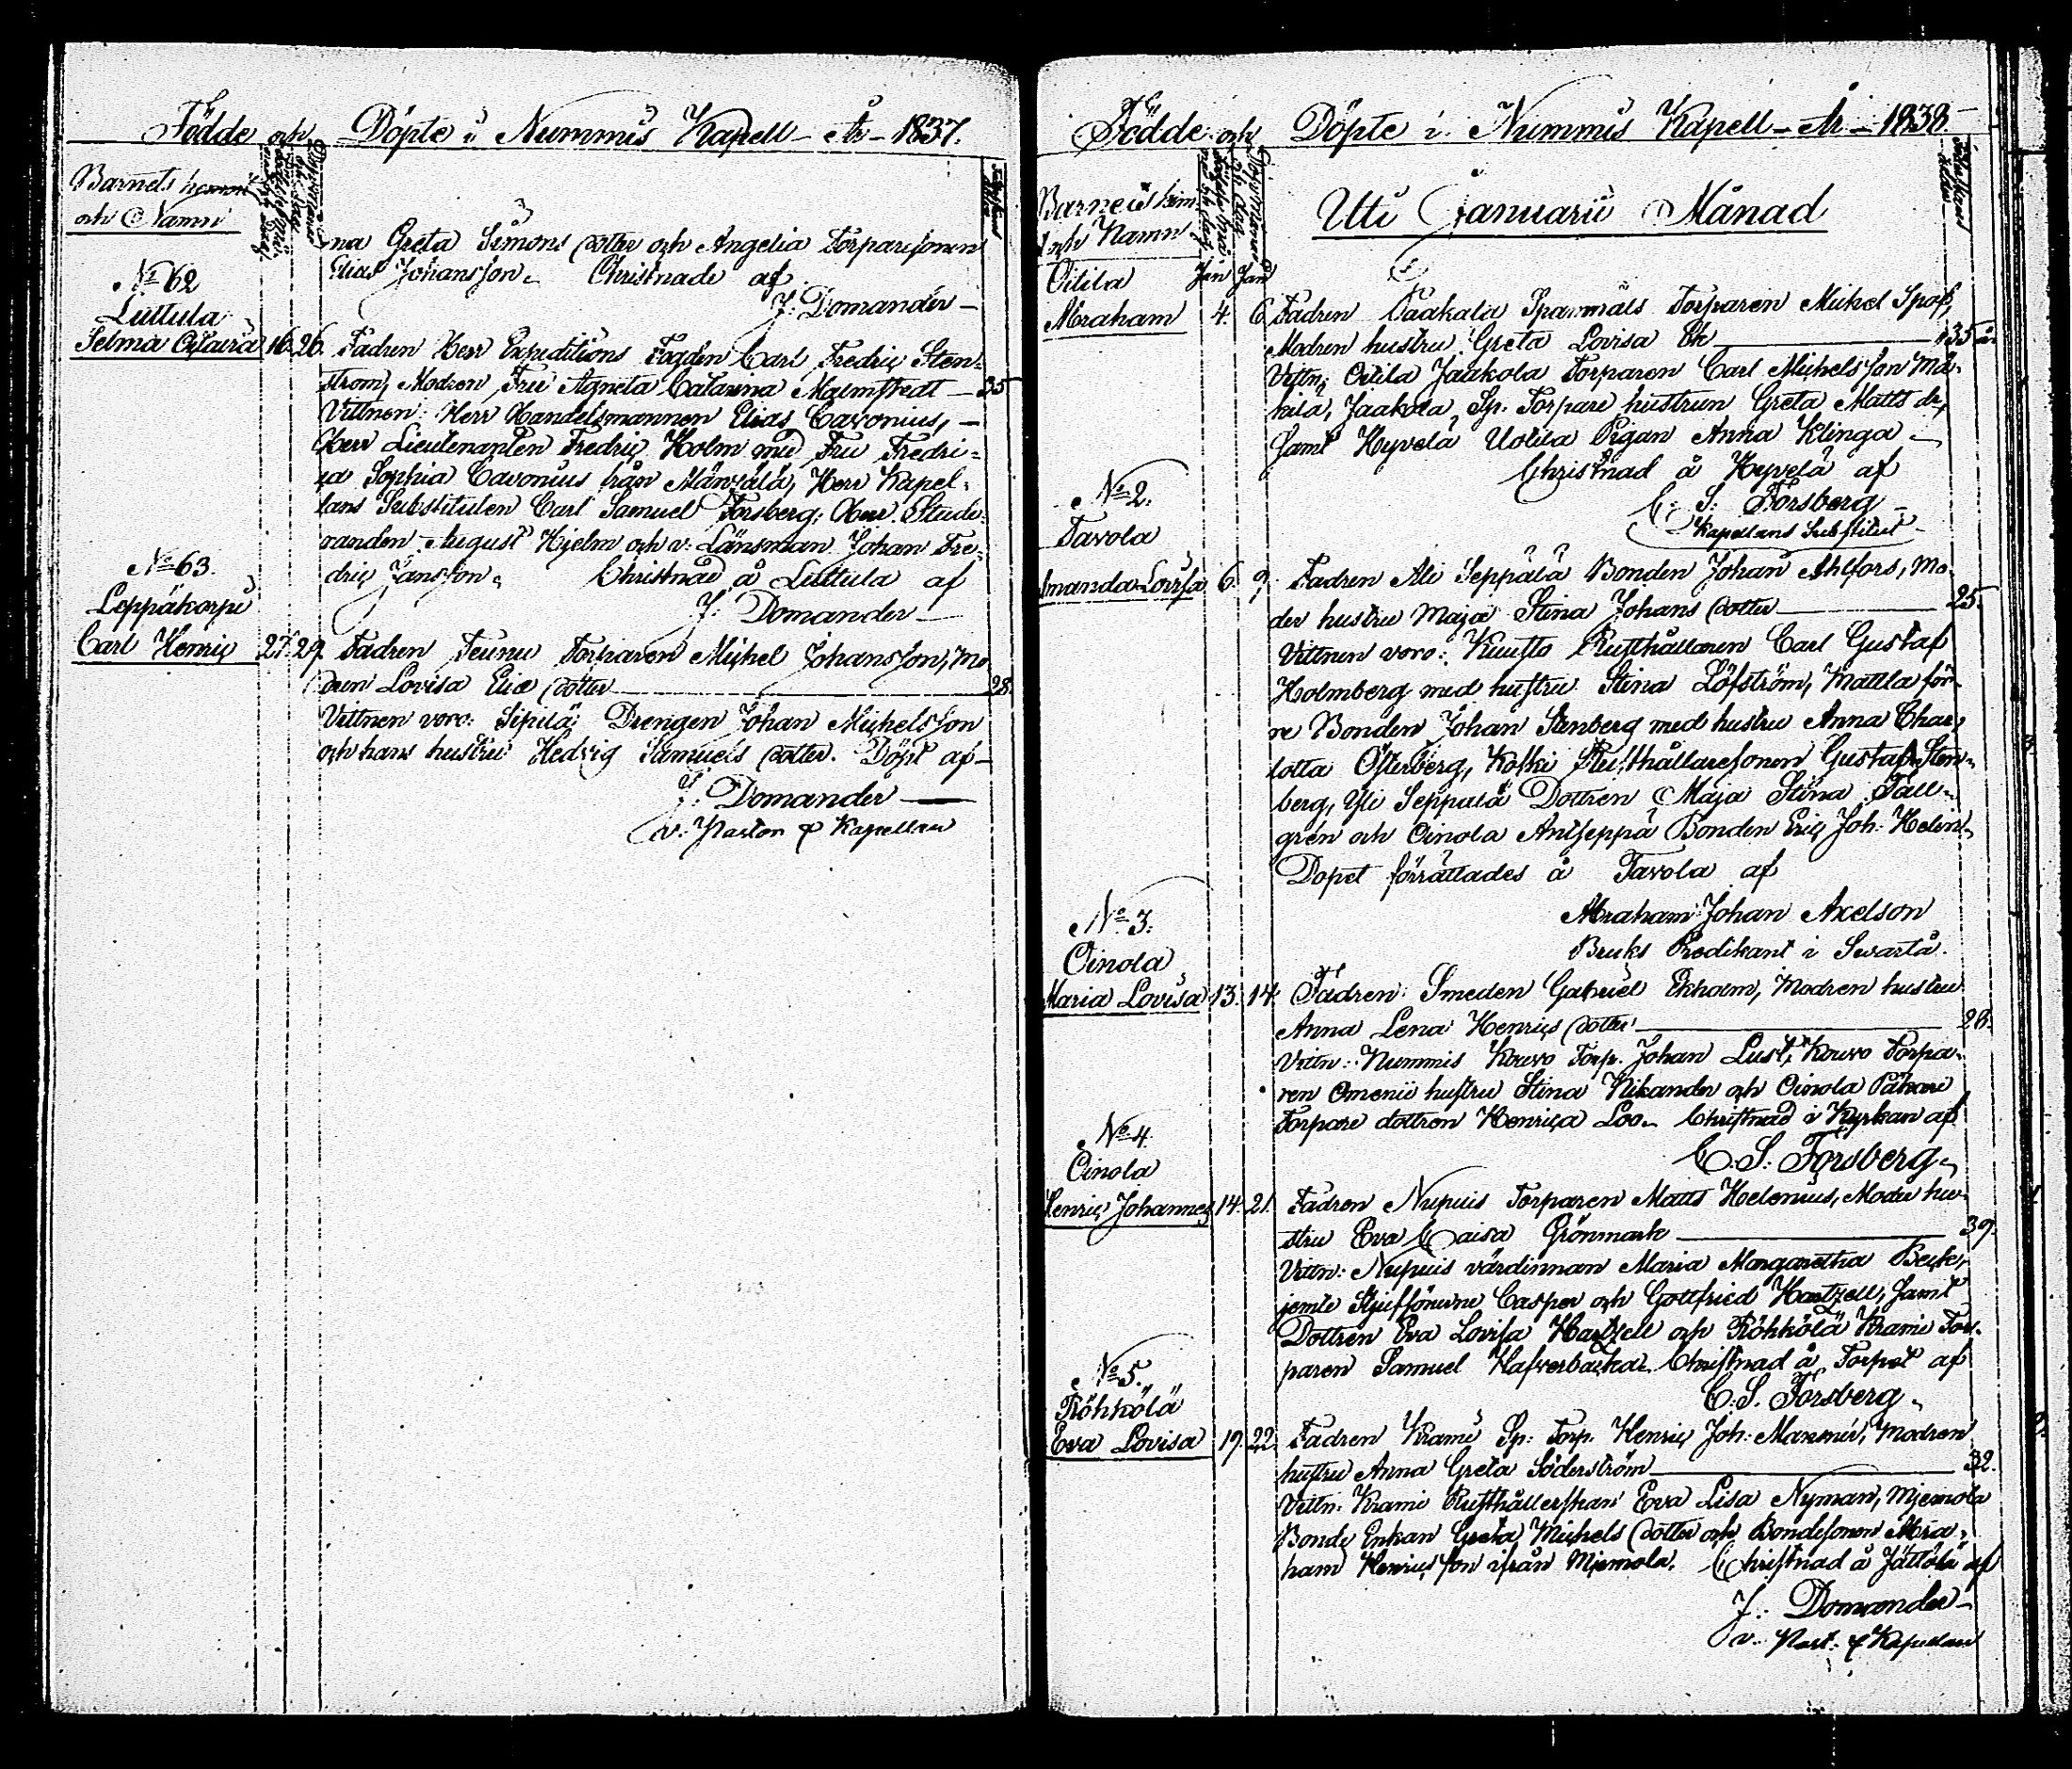 Födde och Döpte i Nummis Kapell - År - 1837.
Barnets hemvit
och Namn
na Greta Simons dotter och Angelia Torparesonen
Elias Johansson. Christnade af
J: Domander -
No 62
Luttula
Selma 16. 26. Fadren Herr Expeditions Fogden Carl Fredric Sten-
ström, Modren Fru Agneta Catarina Malmstedt - 35
Vittnen: Herr Handelsmannen Elias Cavonius, -
Herr Lieutenanten Fredric Holm med Fru Fredri-
ca Sophia Cavonius från Mänsälä, Herr Kapel-
lans Substituten Carl Samuel Forsberg, Herr Stude-
randen August Hjelm och v. Länsman Johan Fre-
dric Jansson. Christnad å Luttula af
J: Domander -
No 63.
Leppäkorpi
Carl Henric 27. 29. Fadren Teunu Torparen Michel Johansson, Mo
dren Lovisa Eliæ dotter 28.
Vittnen voro: Sipilä Drengen Johan Michelsson
och hans hustru Hedvig Samuels dotter. Döpt af -
J: Domander -
v: Pastor & Kapellan
Födde och Döpte i Nummis Kapell - År - 1838.
Barnets hem
och Namn
Uti Januarii Månad
Oitila Jan Jan
Abraham 4. 6. Fadren Jaakola Spannmåls Torparen Michel Spof,
Modren hustru Greta Lovisa Ek 35 år
Vittn: Oitila Jaakola Torparen Carl Michelsson Mä-
kilä, Jaakola Sp. Torpare hustrun Greta Matts dr,
samt Hyvelä Uotila Pigan Anna Klinga -
Christnad å Hyvelä af
C: S: Forsberg -
Kapellans Substitut -
No 2.
Tavola
Amanda Lovisa 6. 9. Fadren Ali Seppälä Bonden Johan Ahlfors, Mo-
der hustru Maja Stina Johans dotter 25.
Vittnen voro: Kuusto Rusthållaren Carl Gustaf
Holmberg med hustru Stina Löfström, Mattla för-
re Bonden Johan Stenberg med hustru Anna Char-
lotta Österberg, Koski Rusthållaresonen Gustaf Sten-
berg, Yli Seppälä Dottren Maja Stina Tall-
gren och Oinola Antseppä Bonden Eric Joh: Helin.
Dopet förrättades å Tavola af
Abraham Johan Axelson
Bruks Predikant i Svartå.
No 3.
Oinola
Maria Lovisa 13. 14. Fadren: Smeden Gabriel Ekholm, Modren hustru
Anna Lena Henrics dotter 28.
Vittn: Nummis Kouvo Torp. Johan Lust, Kouvo Torpa-
ren Omenii hustru Stina Nikander och Oinola Pakari
Torpare dottren Henrica Loo. Christnad i Kyrkan af
C: S: Forsberg.
No 4.
Oinola
Henric Johannes 14. 21. Fadren Nupuis Torparen Matts Helenius, Modr hu-
stru Eva Caisa Grönmark 39.
Vittn: Nupuis värdinnan Maria Margaretha Beck,
jemte Stjufsönerne Casper och Gottfried Hartzell, samt
Dottren Eva Lovisa Hartzell och Röhkölä Krami Tor-
paren Samuel Hafverbacka. Christnad å Torpet af
C. S. Forsberg.
No 5.
Röhkölä
Eva Lovisa 19. 22. Fadren Krami Sp: Torp. Henric Joh: Modren
hustru Anna Greta Söderström 32.
Vittn: Krami Rusthållerskan Eva Lisa Nyman, Mjemola
Bonde Enkan Greta Michels dotter och Bondesonen Abra-
ham Henricsson ifrån Mjemola. Christnad å Jättölä af
J: Domander -
v: Past: & Kapellan